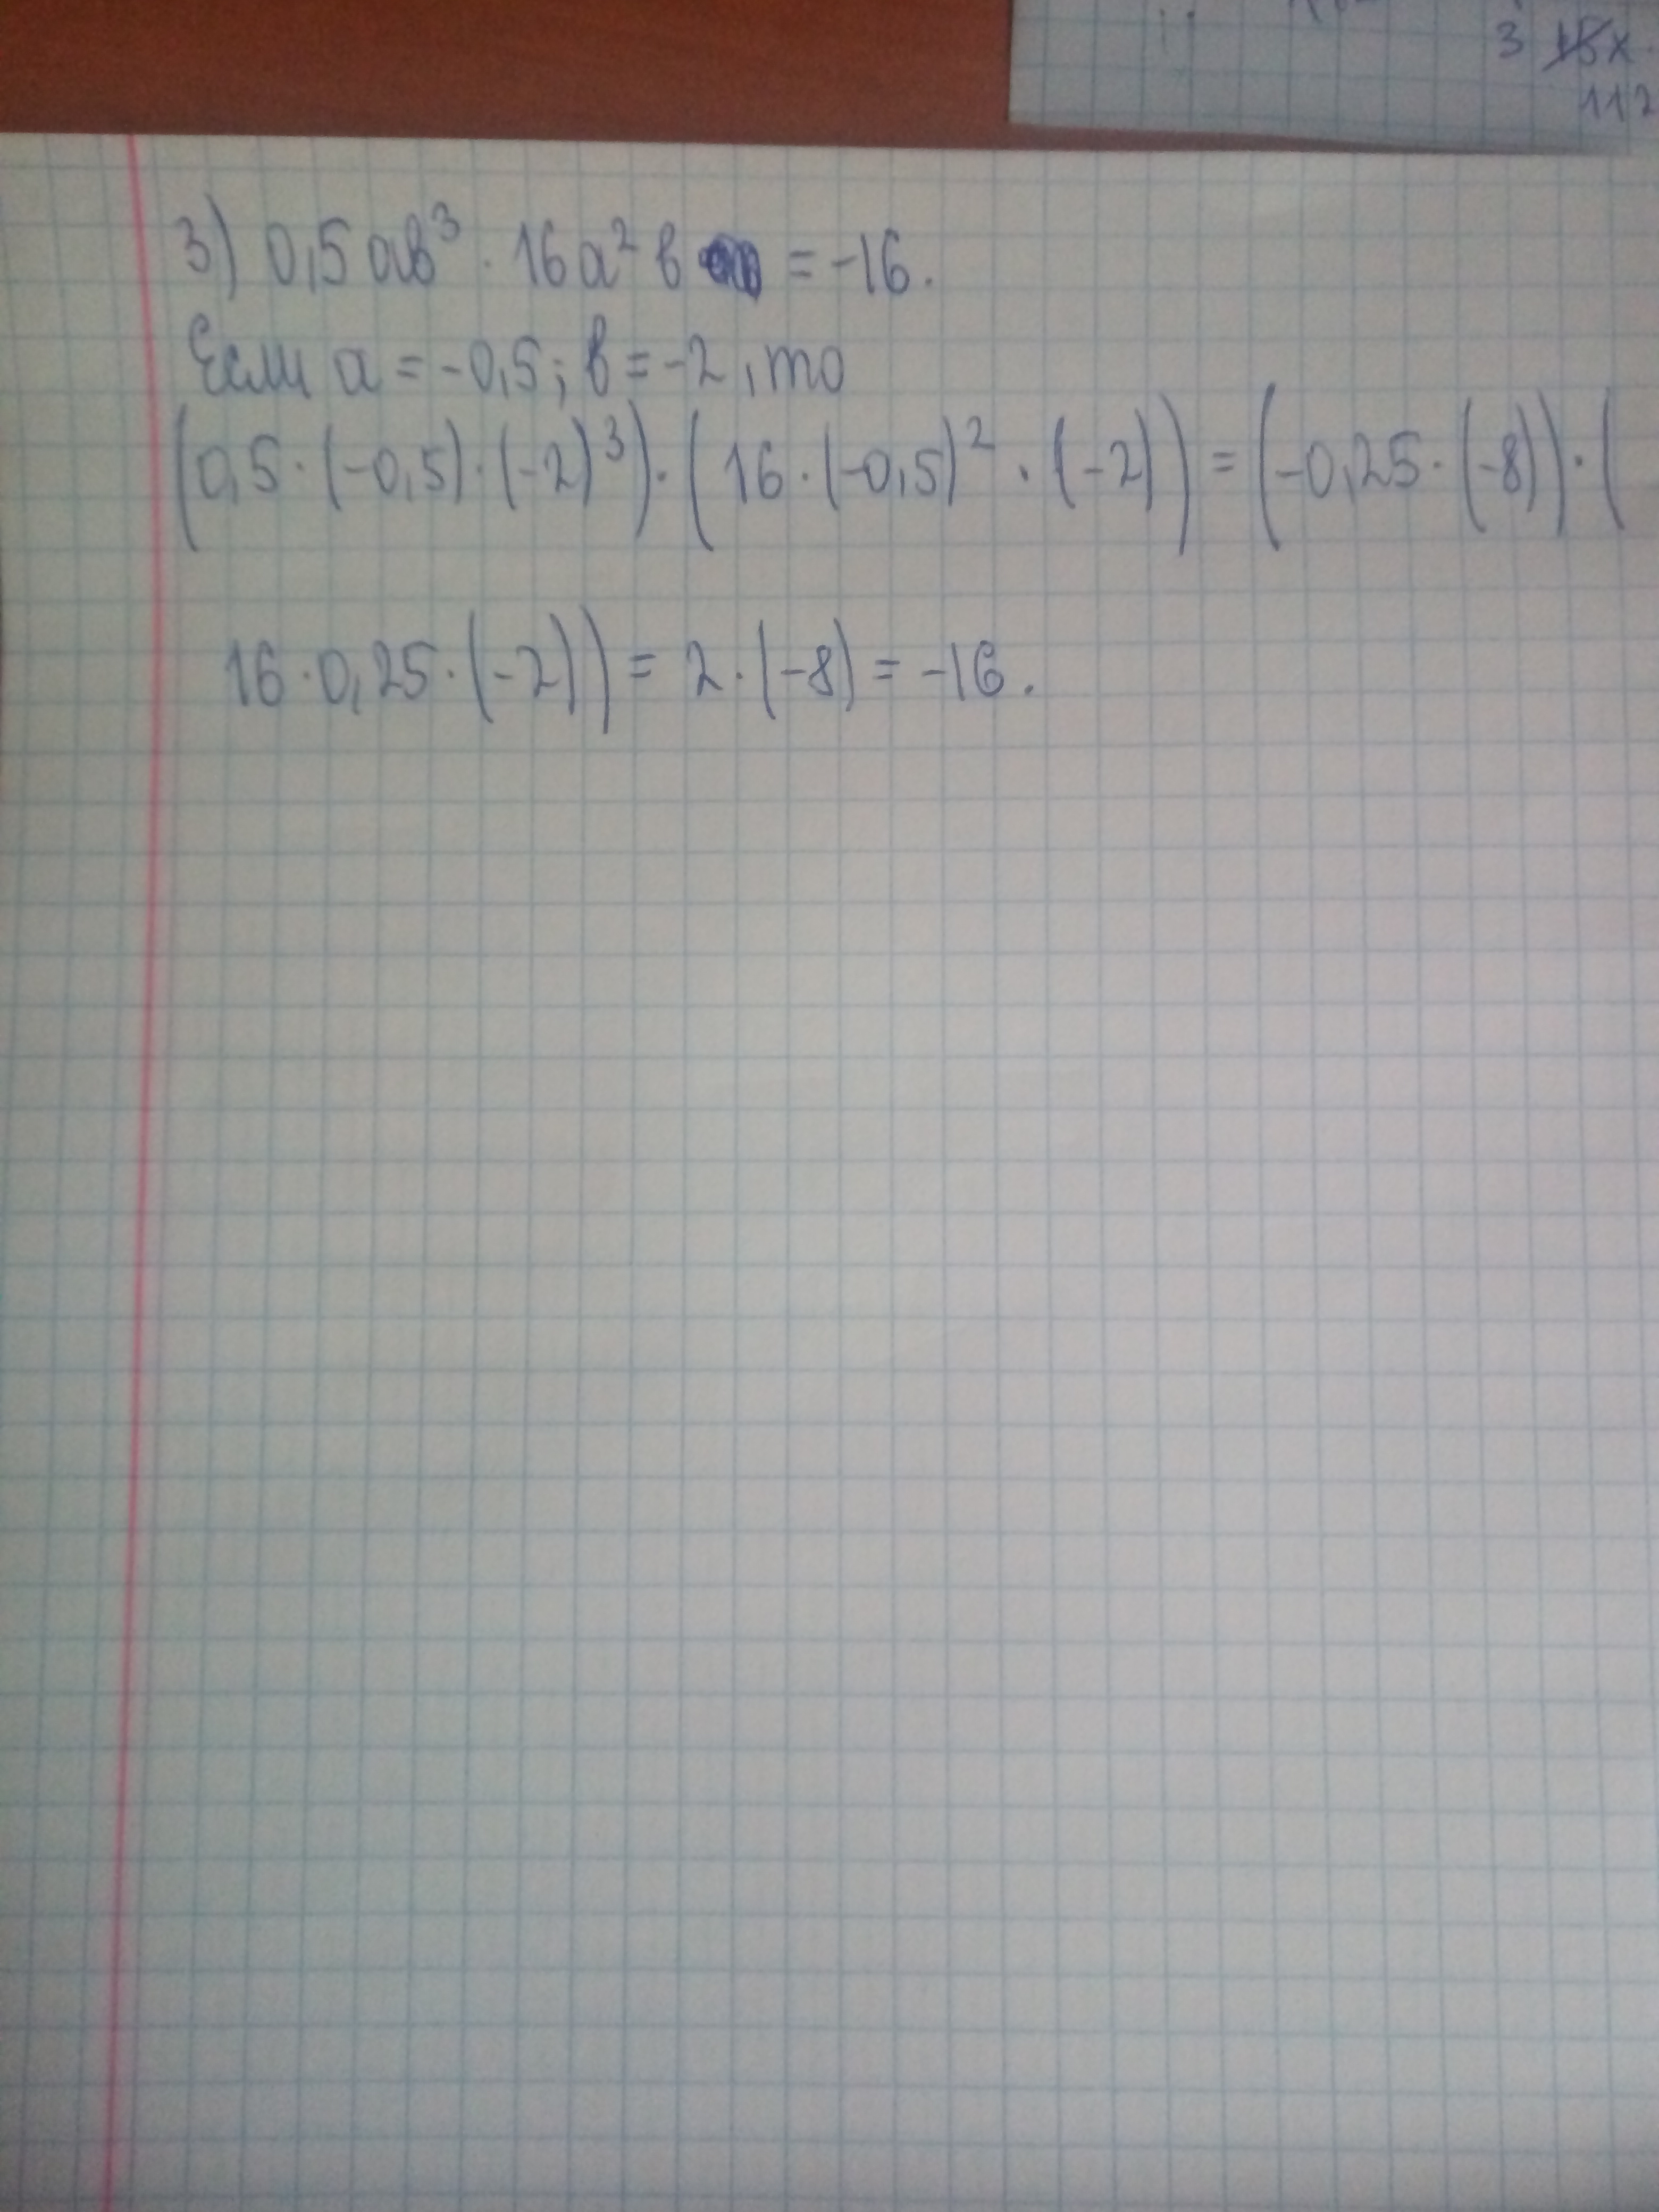 3 15x
112
3) 0,5ab³ · 16a²b = -16.
Если a = -0,5; b = -2, то
(0,5 · (-0,5) · (-2)³) · (16 · (-0,5)² · (-2)) = (-0,25 · (-8)) · (
16 · 0,25 · (-2)) = 2 · (-8) = -16.